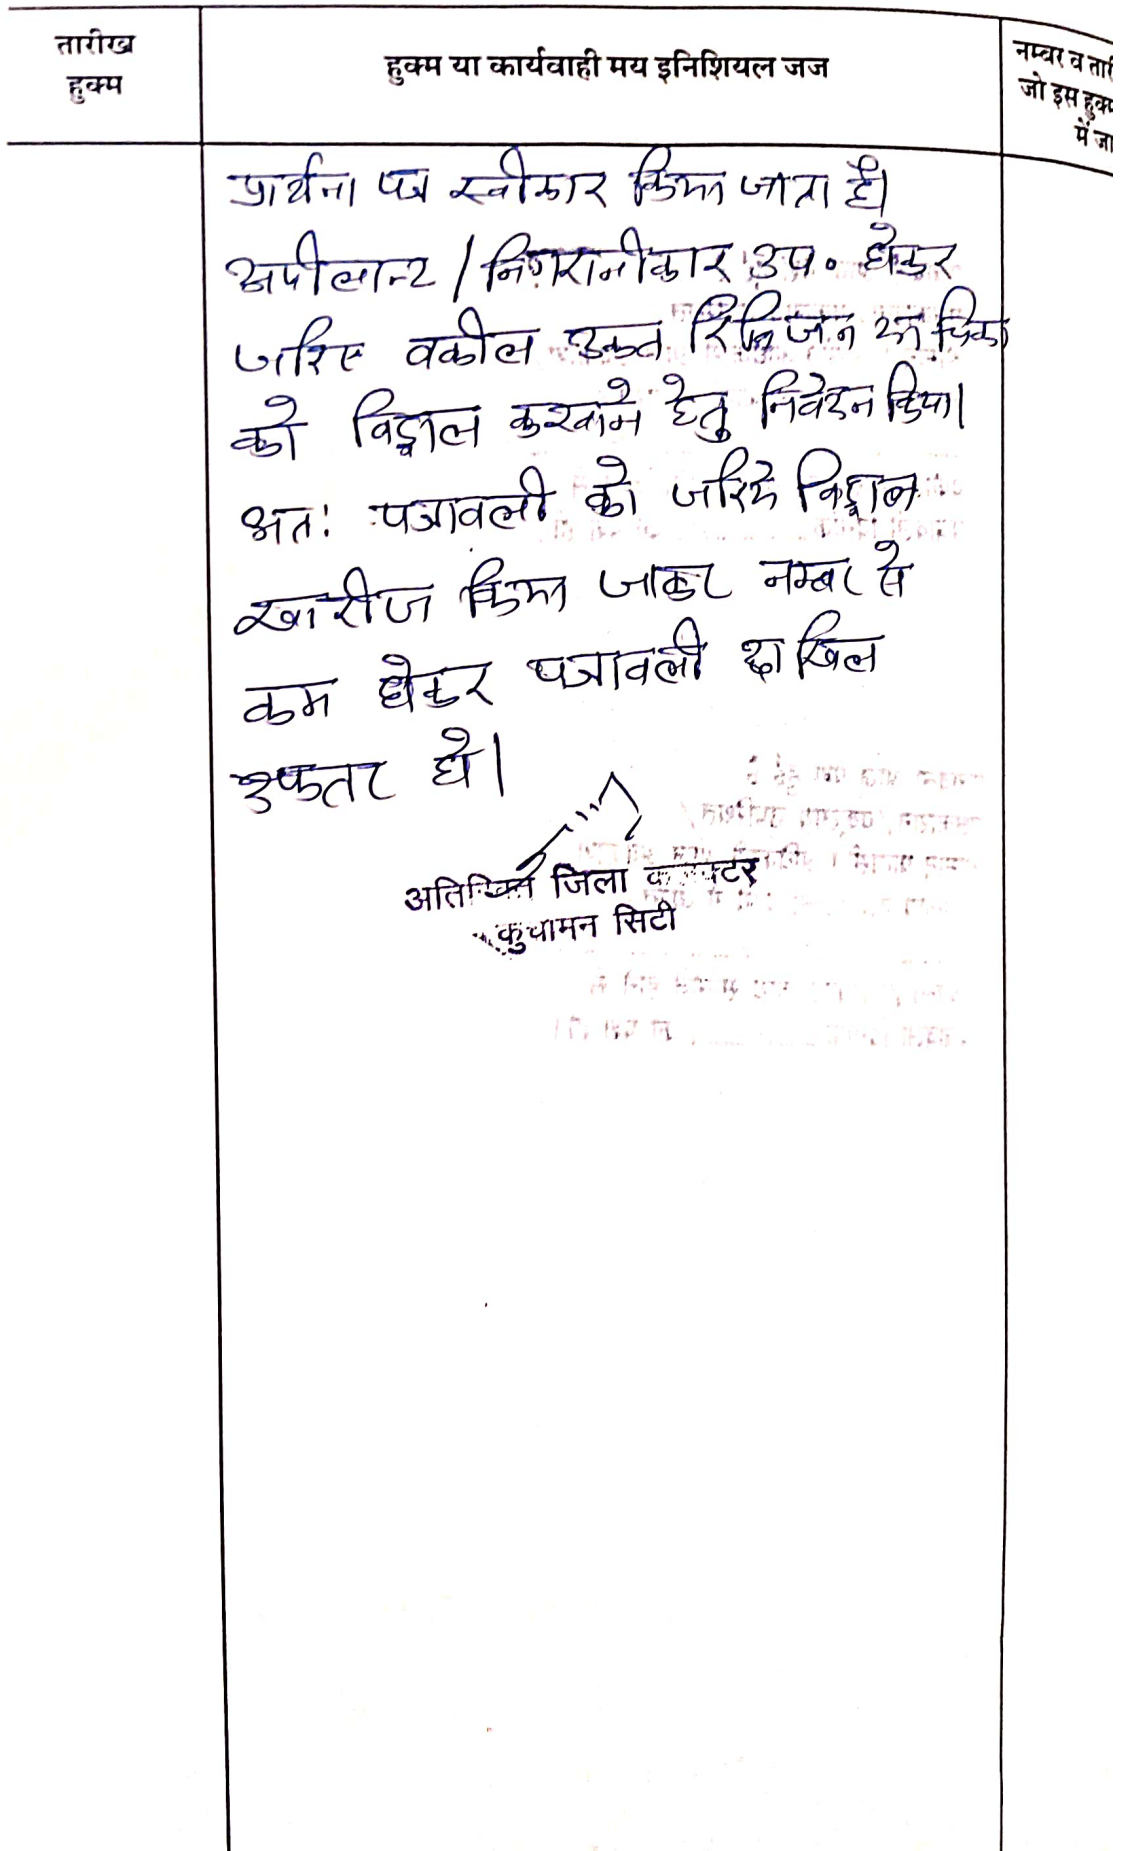 तारीख
हुक्म
हुक्म या कार्यवाही मय इनिशियल जज
नम्बर व तारी
जो इस हुक्म
में जा
प्रार्थना पत्र स्वीकार किया जाता है।
अपीलान्ट / निगरानीकार उप. होकर
जरिए वकील उक्त रिविजन याचिका
को विड्राल करवाने हेतु निवेदन किया।
अतः पत्रावली को जरिये विड्राल
खारीज किया जाकर नम्बर से
कम होकर पत्रावली दाखिल
दफतर हो।
अतिरिक्त जिला कलक्टर
कुचामन सिटी